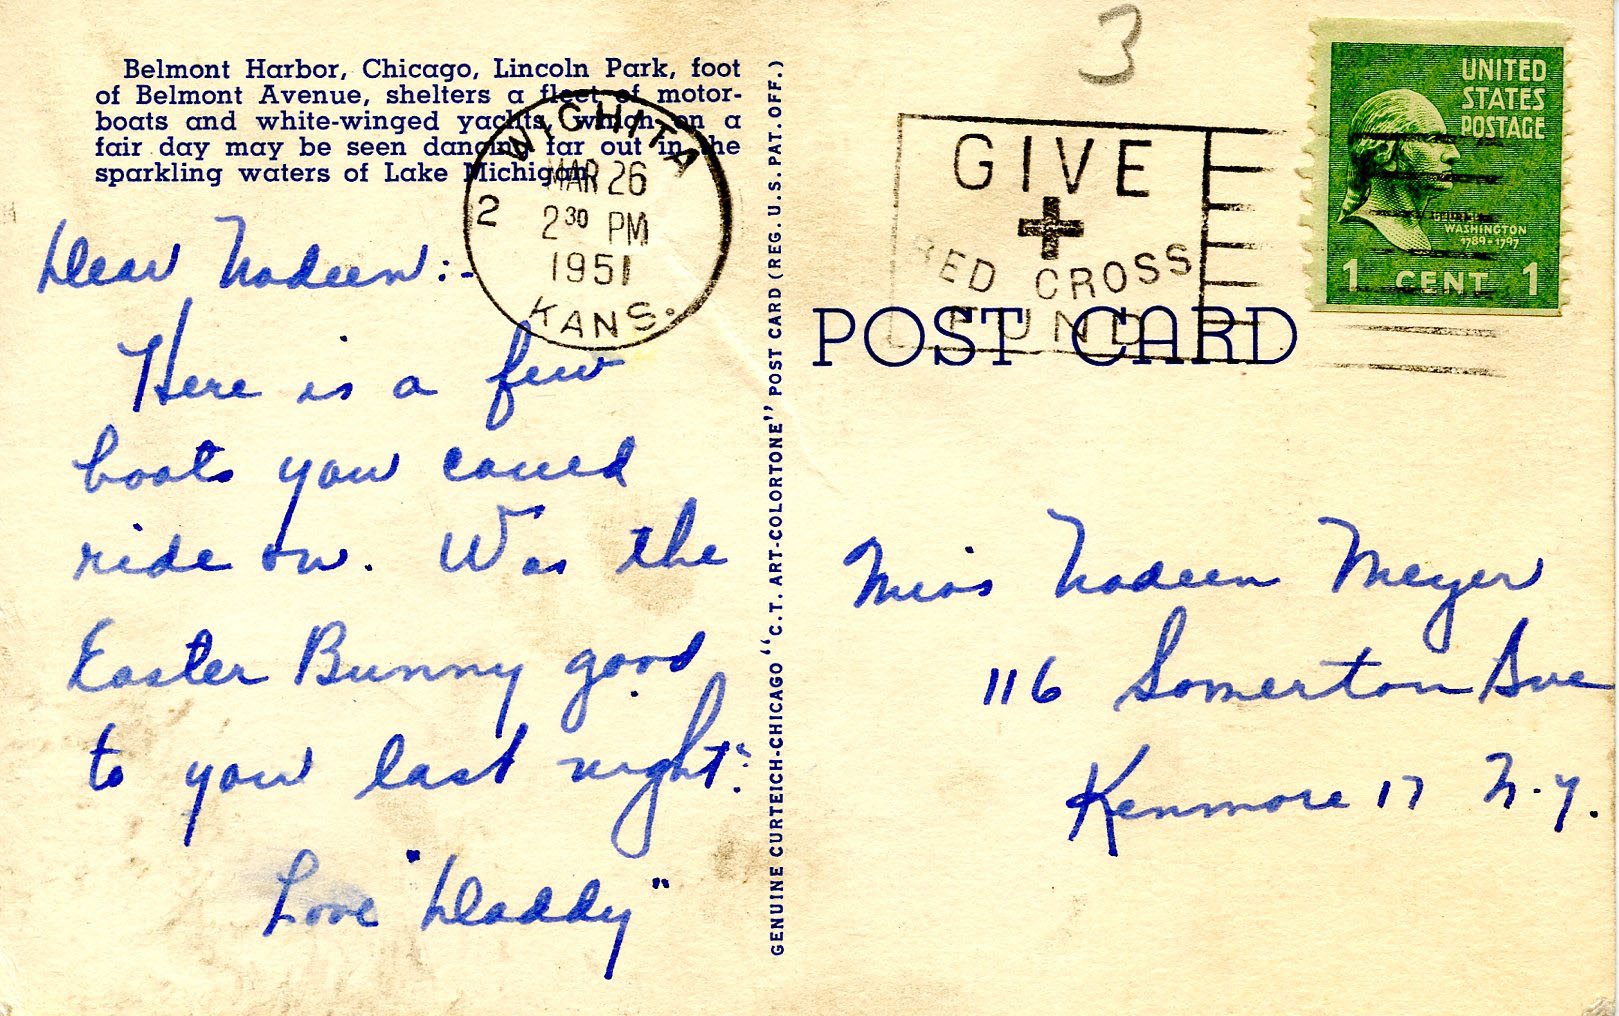 Belmont Harbor, Chicago, Lincoln Park, foot
of Belmont Avenue, shelters a fleet of motor-
boats and white-winged yachts, which on a
fair day may be seen dancing far out in the
sparkling waters of Lake Michigan.
WICHITA
MAR 26
2 30 PM
1951
KANS.
2
Dear Nadeen:-
Here is a few
boats you caued
ride on. Was the
Easter Bunny good
to you last night?
Love "Daddy"
GENUINE CURTEICH-CHICAGO "C.T. ART-COLORTONE" POST CARD (REG. U.S. PAT. OFF.)
3
GIVE
RED CROSS
FUND
UNITED
STATES
POSTAGE
WASHINGTON
1789-1797
1 CENT 1
POST CARD
Miss Nadeen Meyer
116 Somerton Ave
Kenmore 17 N.Y.